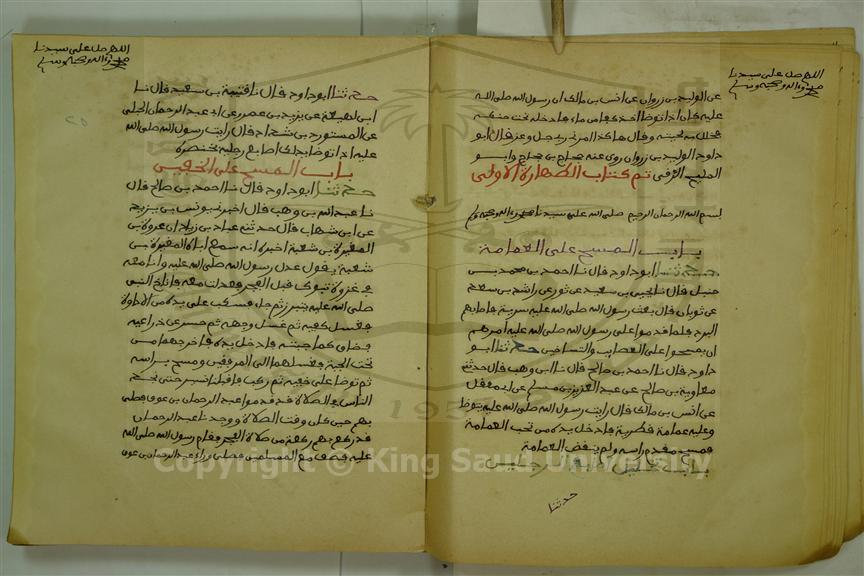 اللهم صل على سيدنا
محمد وآله وصحبه وسلم
عن الوليد بن زروان عن انس بن مالك ان رسول الله صلى الله
عليه كان اذا توضا اخذ كفا من ماء فادخله تحت حنكه
فخلل به لحيته وقال هكذا امرني ربي جل وعز قال ابو
داود الوليد بن زروان روى عنه حجاج بن حجاج وابو
المليح الرقي تم كتاب الطهارة الاولى
بسم الله الرحمان الرحيم صلى الله على سيدنا محمد وآله وصحبه وسلم
باب المسح على العمامة
حدثنا ابو داود قال نا احمد بن محمد بن
حنبل قال نا يحيى بن سعيد عن ثور عن راشد بن سعد
عن ثوبان قال بعث رسول الله صلى الله عليه سرية فاصابهم
البرد فلما قدموا على رسول الله صلى الله عليه امرهم
ان يمسحوا على العصايب والتساخين حدثنا ابو
داود قال نا احمد بن صالح قال نا ابن وهب قال حدثني
معاوية بن صالح عن عبد العزيز بن مسلم عن ابي معقل
عن انس بن مالك قال رايت رسول الله صلى الله عليه يتوضا
وعليه عمامة قطرية فادخل يده من تحت العمامة
فمسح مقدم راسه ولم ينقض العمامة
باب غسل الرجلين
حدثنا
اللهم صل على سيدنا
محمد وآله وصحبه وسلم
حدثنا ابو داود قال نا قتيبة بن سعيد قال نا
ابن لهيعة عن يزيد بن عمرو عن ابي عبد الرحمان الحبلي
عن المستورد بن شداد قال رايت رسول الله صلى الله
عليه اذا توضا يدلك اصابع رجليه بخنصره
باب المسح على الخفين
حدثنا ابو داود قال نا احمد بن صالح قال
نا عبد الله بن وهب قال اخبرني يونس بن يزيد
عن ابن شهاب قال حدثني عباد بن زياد ان عروة بن
المغيرة بن شعبة اخبره انه سمع اباه المغيرة بن
شعبة يقول عدل رسول الله صلى الله عليه وانا معه
في غزوة تبوك قبل الفجر فعدلت معه فاناخ النبي
صلى الله عليه فتبرز ثم جاء فسكبت على يده من الاداوة
فغسل كفيه ثم غسل وجهه ثم حسر عن ذراعيه
فضاق كما جبته فادخل يده فاخرجهما من
تحت الجبة فغسلهما الى المرفقين ومسح براسه
ثم توضا على خفيه ثم ركب فاقبلنا نسير حتى نجد
الناس في الصلاة قد قدموا عبد الرحمان بن عوف فصلى
بهم حين كان وقت الصلاة ووجدنا عبد الرحمان
قد ركع بهم ركعة من صلاة الفجر فقام رسول الله صلى الله
عليه فصف مع المسلمين فصلى وراء عبد الرحمان بن عوف
Copyright © King Saud University
1957